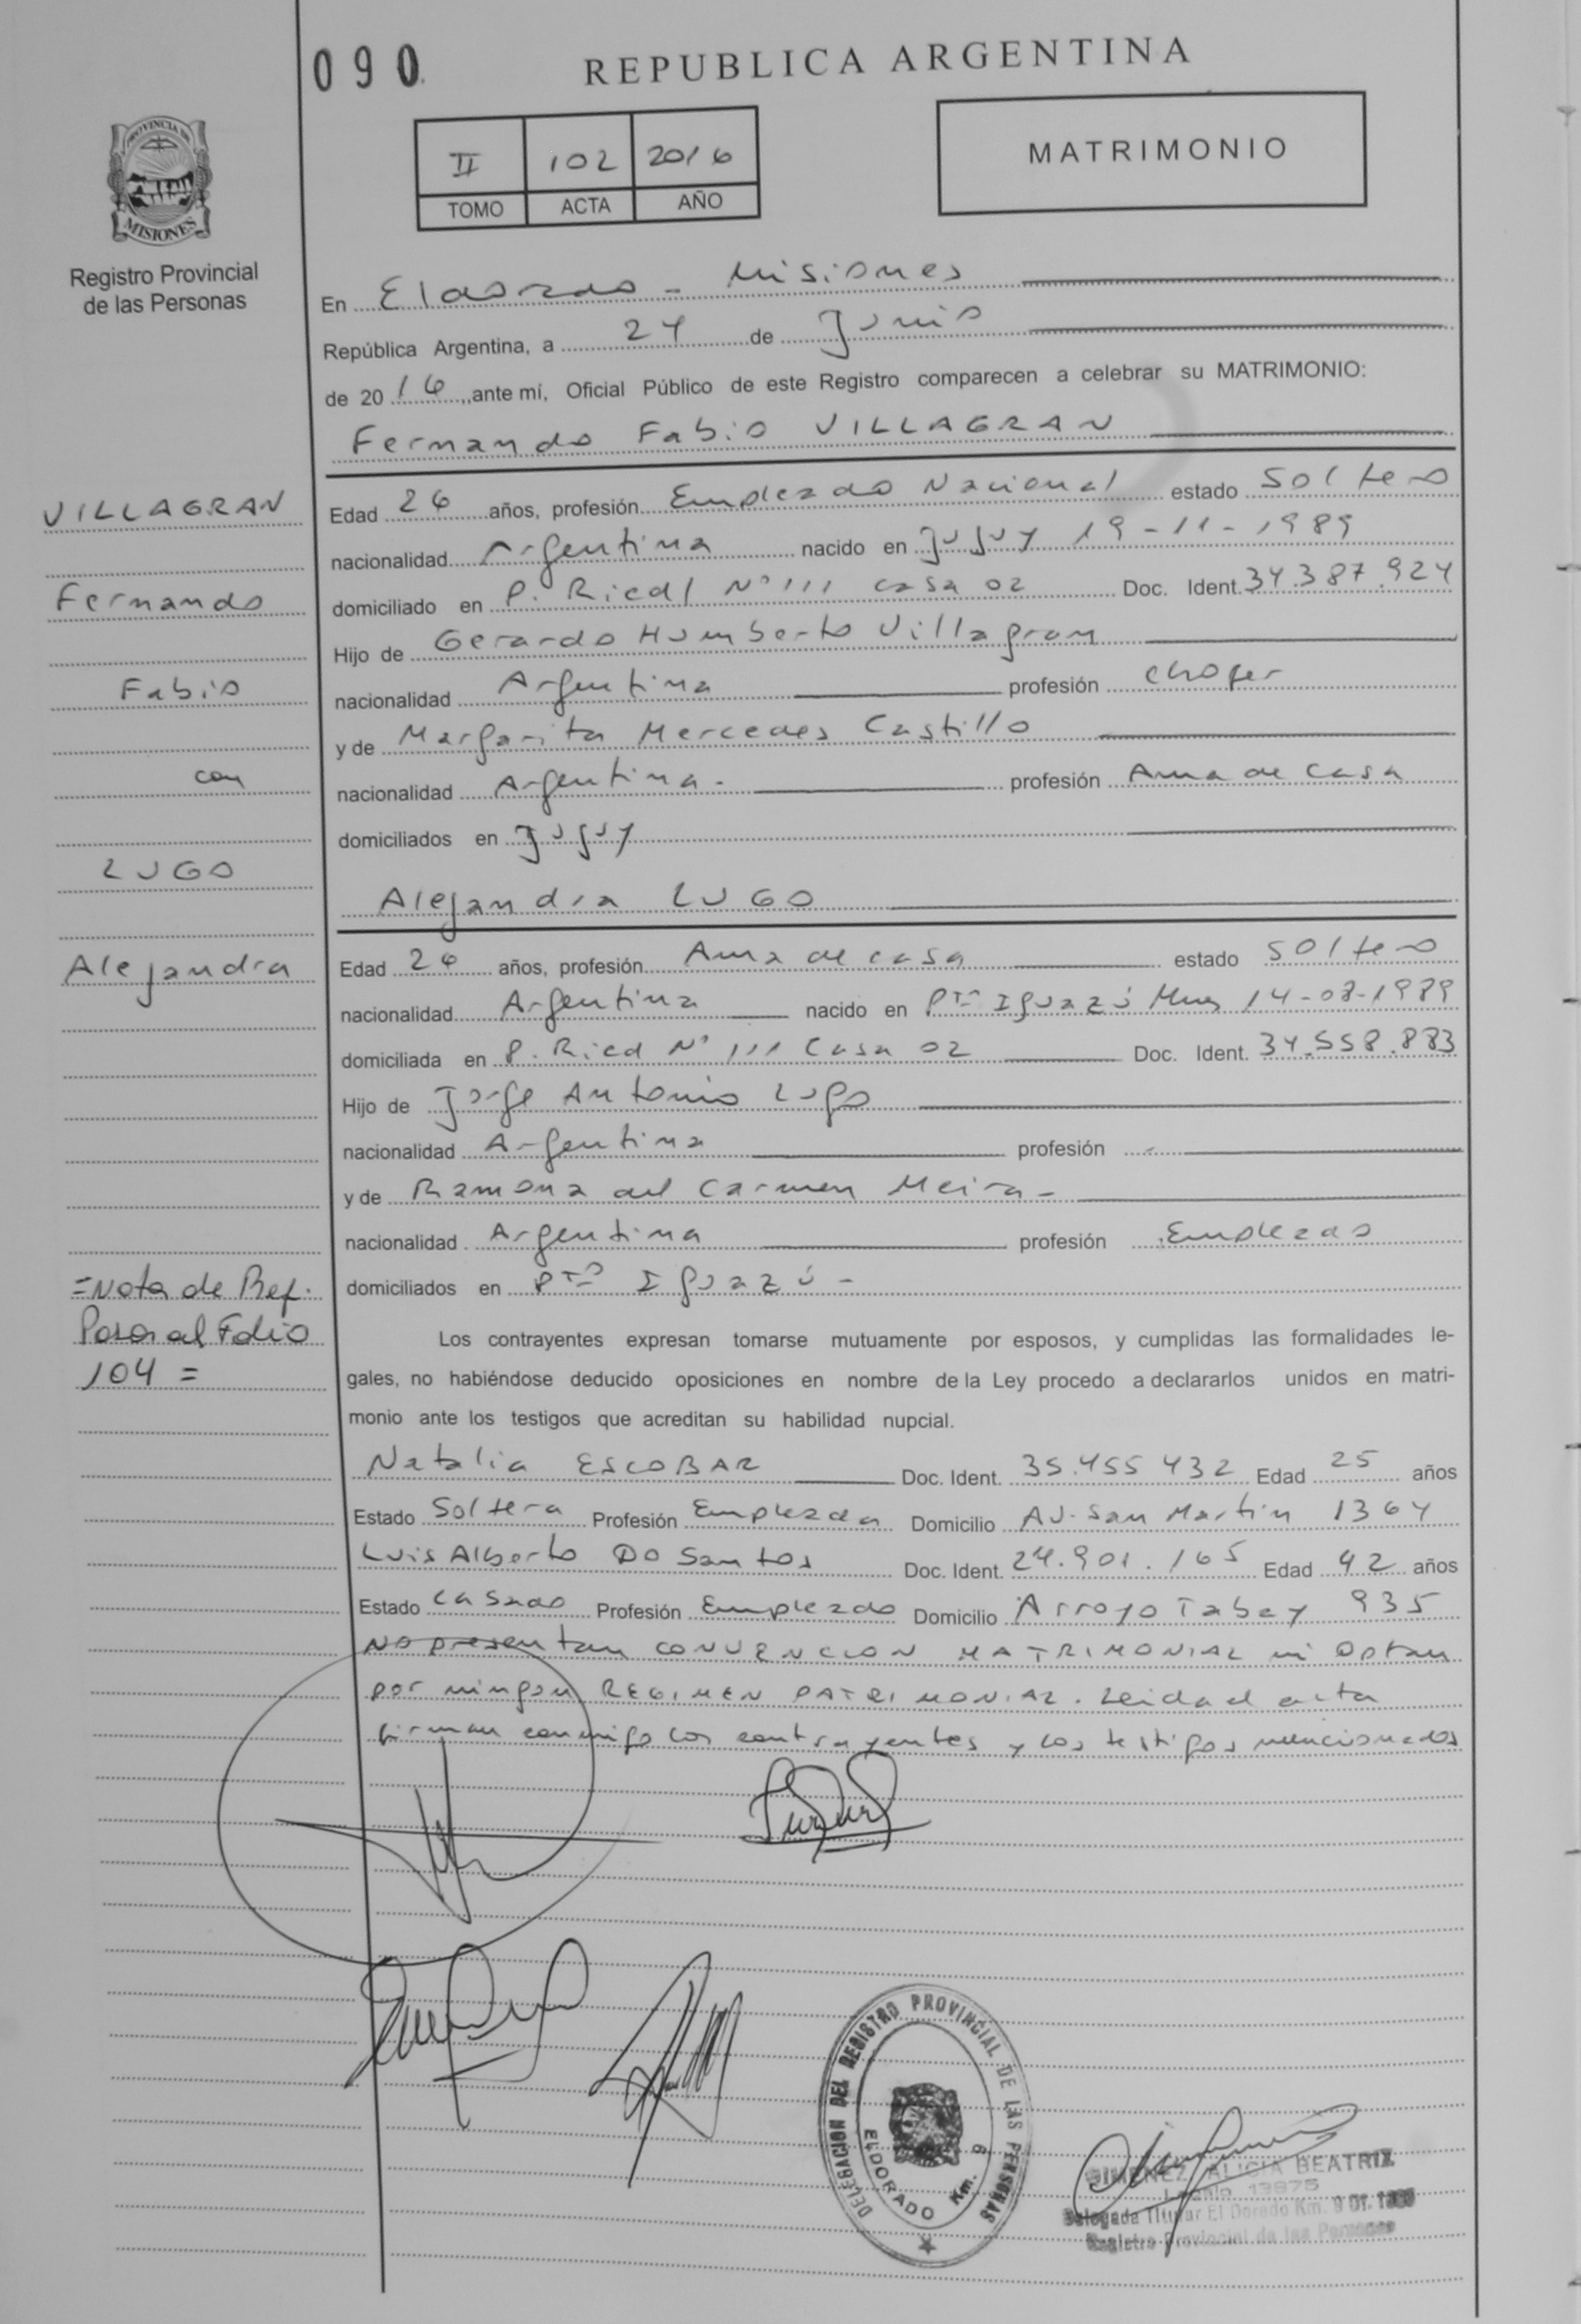 090
REPUBLICA ARGENTINA
PROVINCIA DE
MISIONES
Registro Provincial
de las Personas
II 102 2016
TOMO ACTA AÑO
MATRIMONIO
En Eldorado - Misiones
República Argentina, a 24 de Junio
de 2016, ante mí, Oficial Público de este Registro comparecen a celebrar su MATRIMONIO:
Fernando Fabio VILLAGRAN
VILLAGRAN
Fernando
Fabio
con
LUGO
Alejandra
Edad 26 años, profesión Empleado Nacional estado Soltero
nacionalidad Argentina nacido en Jujuy 19-11-1989
domiciliado en P. Riedl Nº 111 casa 02 Doc. Ident. 34.387.924
Hijo de Gerardo Humberto Villagran
nacionalidad Argentina profesión chofer
y de Margarita Mercedes Castillo
nacionalidad Argentina - profesión Ama de casa
domiciliados en Jujuy
Alejandra LUGO
Edad 26 años, profesión Ama de casa estado soltero
nacionalidad Argentina nacido en Pto Iguazú Mnes 14-08-1989
domiciliada en P. Ried Nº 111 Casa 02 Doc. Ident. 34.558.883
Hijo de Jorge Antonio Lugo
nacionalidad Argentina profesión -
y de Ramona del Carmen Meira -
nacionalidad Argentina profesión Empleado
domiciliados en Pto Iguazú -
=Nota de Ref.
Pasar al Folio
104 =
Los contrayentes expresan tomarse mutuamente por esposos, y cumplidas las formalidades le-
gales, no habiéndose deducido oposiciones en nombre de la Ley procedo a declararlos unidos en matri-
monio ante los testigos que acreditan su habilidad nupcial.
Natalia ESCOBAR Doc. Ident. 35.455.432 Edad 25 años
Estado Soltera Profesión Empleada Domicilio AV. San Martin 1364
Luis Alberto DO Santos Doc. Ident. 24.901.165 Edad 42 años
Estado Casado Profesión Empleado Domicilio Arroyo Tabay 935
No presentan CONVENCION MATRIMONIAL ni optan
por ningun REGIMEN PATRIMONIAL. Leida el acta
firman conmigo los contrayentes y los testigos mencionados
DELEGACION DEL REGISTRO PROVINCIAL DE LAS PERSONAS
ELDORADO Km. 9
GIMENEZ, ALICIA BEATRIZ
Legajo 13875
Delegada Titular El Dorado Km. 9 Of.
Registro Provincial de las Personas